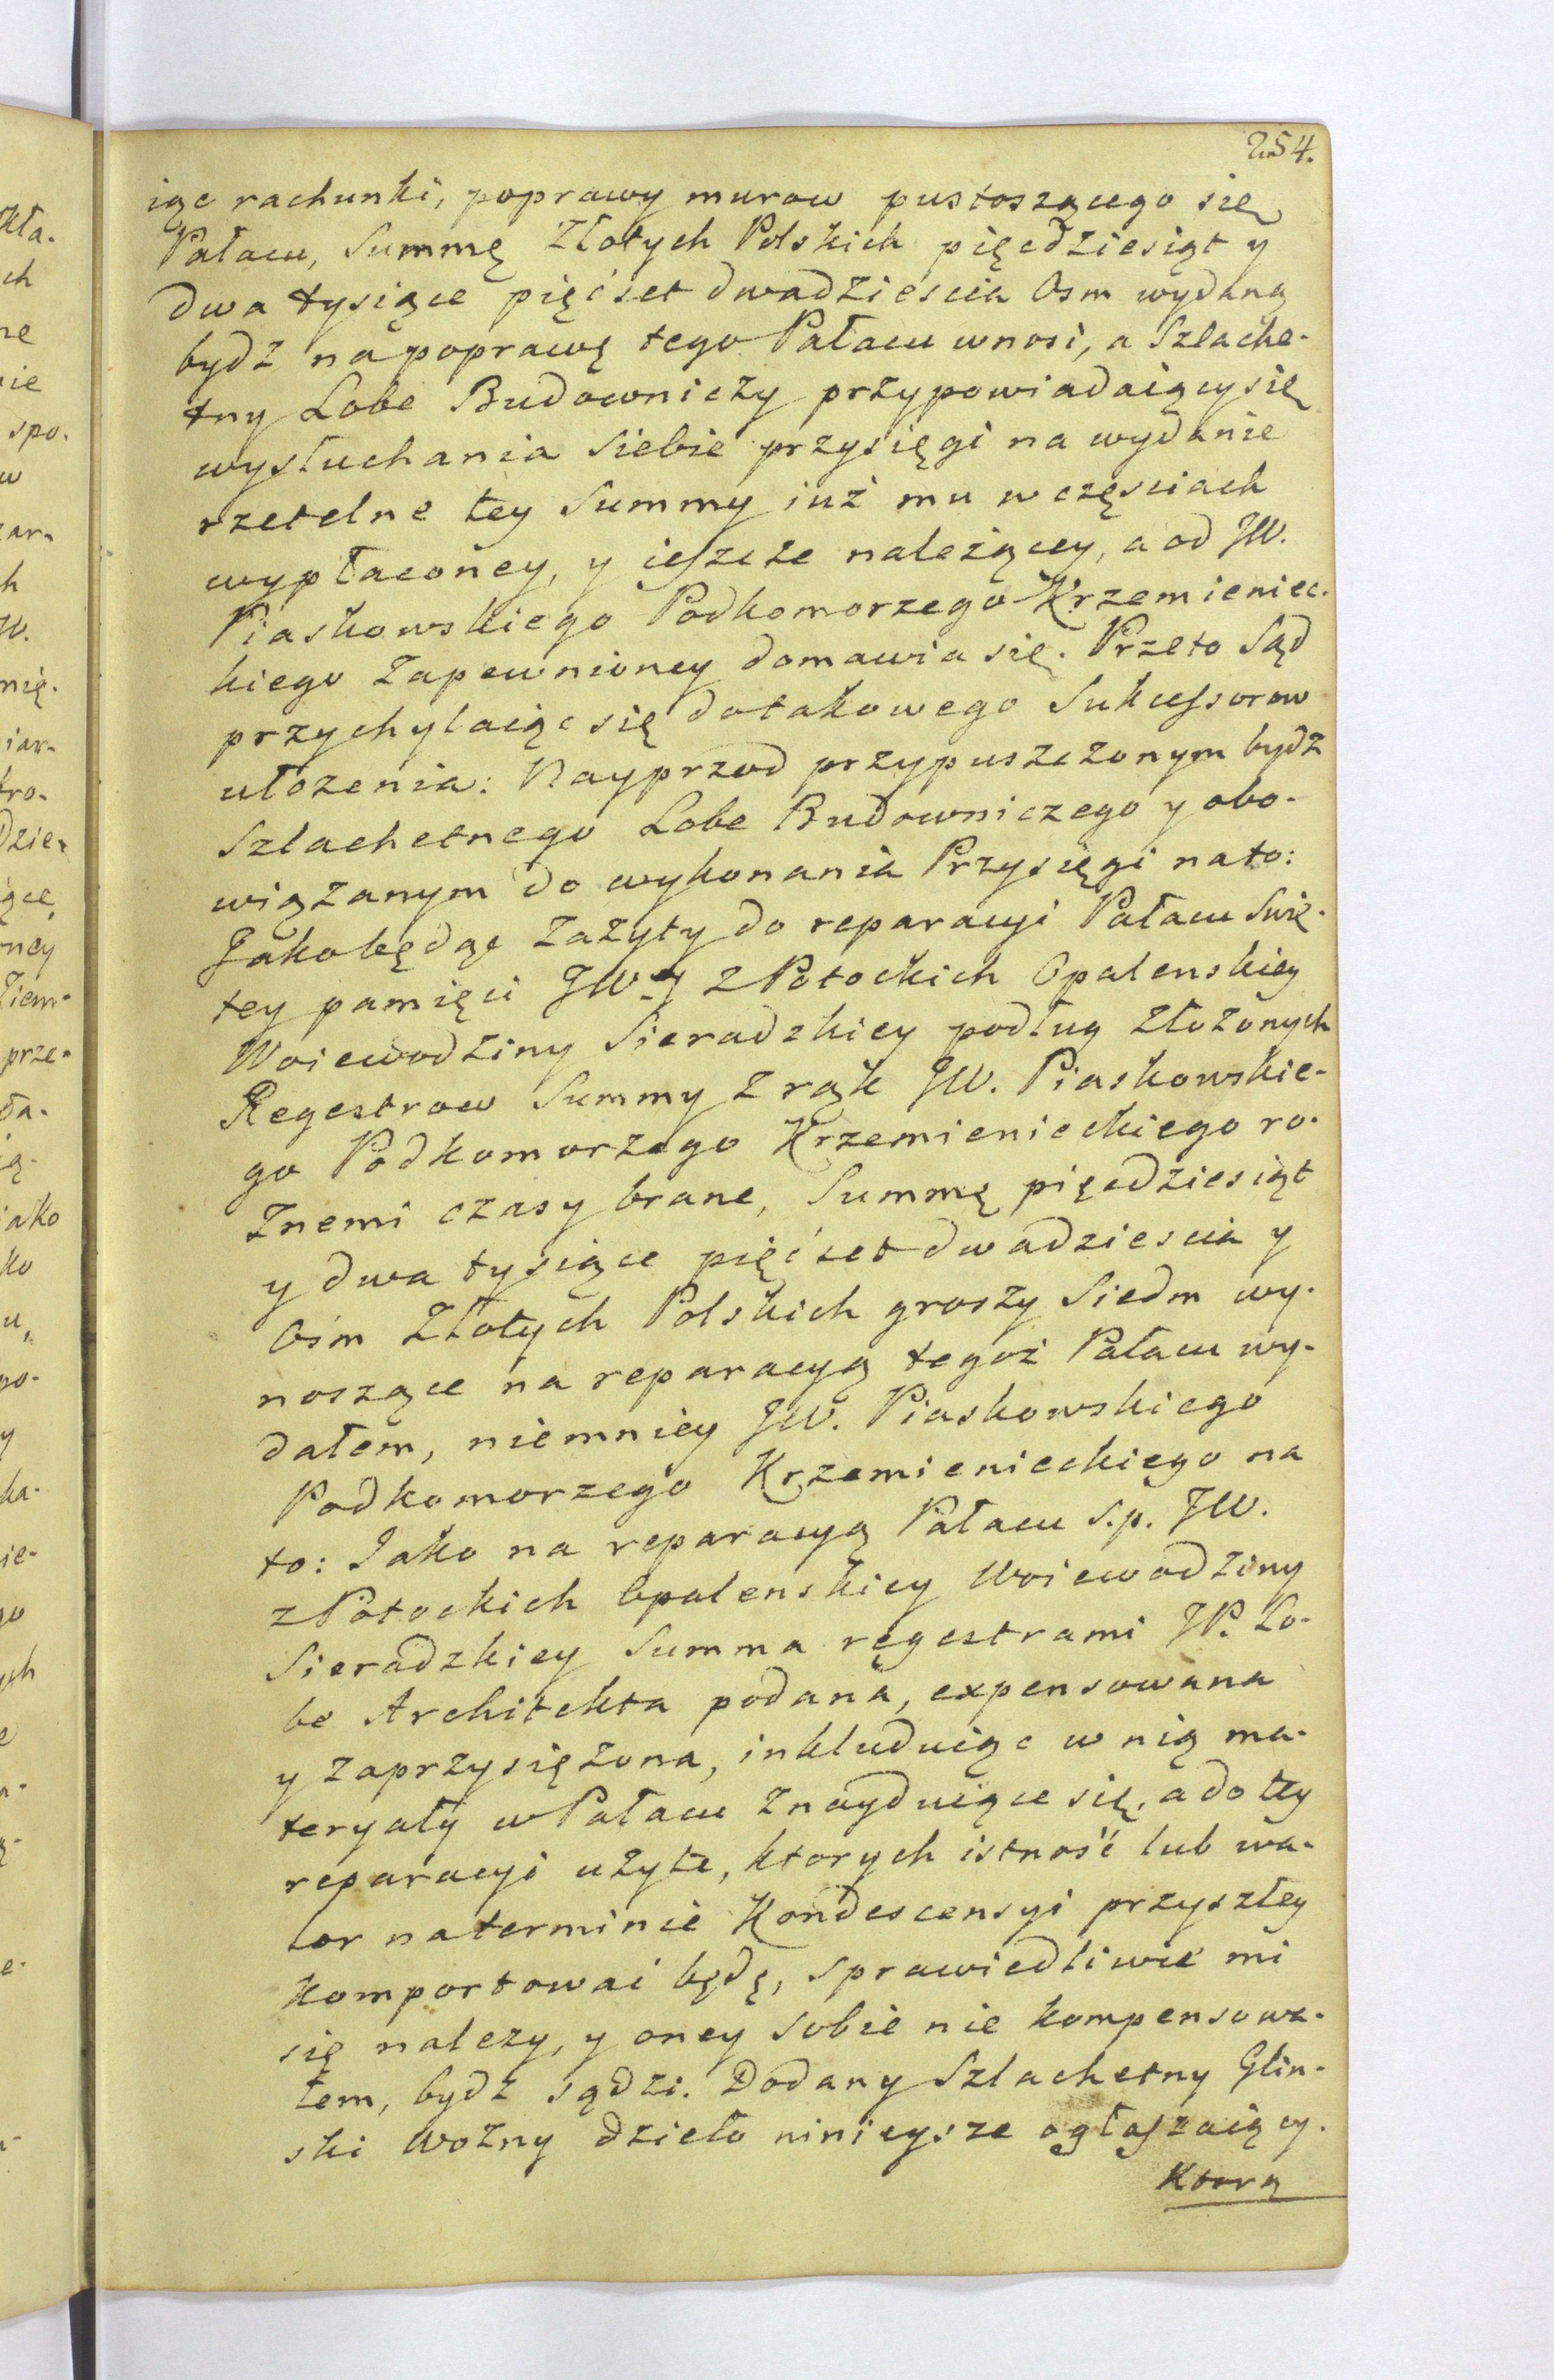 254.
iąc rachunki, poprawy murow pustoszącego się
Pałacu, Summę Złotych Polskich pięcdziesiąt y
dwa tysiące pięćset dwadziescia Osm wydaną
bydz na poprawę tego Pałacu wnosi, a Szlache-
tny Lobe Budowniczy przypowiadaiący się
wysłuchania Siebie przysięgi na wydanie
rzetelne tey Summy iuż mu w częsciach
wypłaconey, y ieszcze należącey, a od JW.
Piaskowskiego Podkomorzego Krzemieniec-
kiego Zapewnioney domawia się. Przeto Sąd
przychylaiąc się do takowego Sukcessorow
ułozenia: Nayprzod przypuszczonym bydz
Szlachetnego Lobe Budowniczego y obo-
wiązanym do wykonania Przysięgi na to:
Jako będąc Zażyty do reparacyi Pałacu Swię-
tey pamięci JW. J Z Potockich Opalenskiey
Woiewodziny Sieradzkiey podług złożonych
Regestrow Summy z rąk JW. Piaskowskie-
go Podkomorzego Krzemienieckiego ro-
żnemi czasy brane, Summę pięcdziesiąt
y dwa tysiące pięćset dwadziescia y
Ośm Złotych Polskich groszy Siedm wy-
noszące na reparacyą tegoż Pałacu wy-
dałem, niemniey JW. Piaskowskiego
Podkomorzego Krzemienieckiego na
to: Jako na reparacyą Pałacu S.p. JW.
z Potockich Opalenskiey Woiewodziny
Sieradzkiey Summa regestrami JP. Lo-
be Architekta podana, expensowana
y zaprzysiężona, inkluduiąc w nią ma-
teryały w Pałacu znayduiące się, a do tey
reparacyi użyte, ktorych istność lub wa-
lor na terminie Kondescensyi przyszłey
komportować będę, sprawiedliwie mi
się nalezy, y oney sobie nie kompensowa-
łem, bydź sądzi. Dodany Szlachetny Glin-
ski Wozny dzieło ninieysze ogłaszaiący.
Ktorą
kła-
ch
ne
nie
spo-
w
ar-
h
W.
nię-
iar-
tro-
dzie-
ące
ney
Ziem-
prze-
da-
ią-
iako
ko
u,
go-
y
ka-
ie-
go
ych
e
a-
ą-
e-